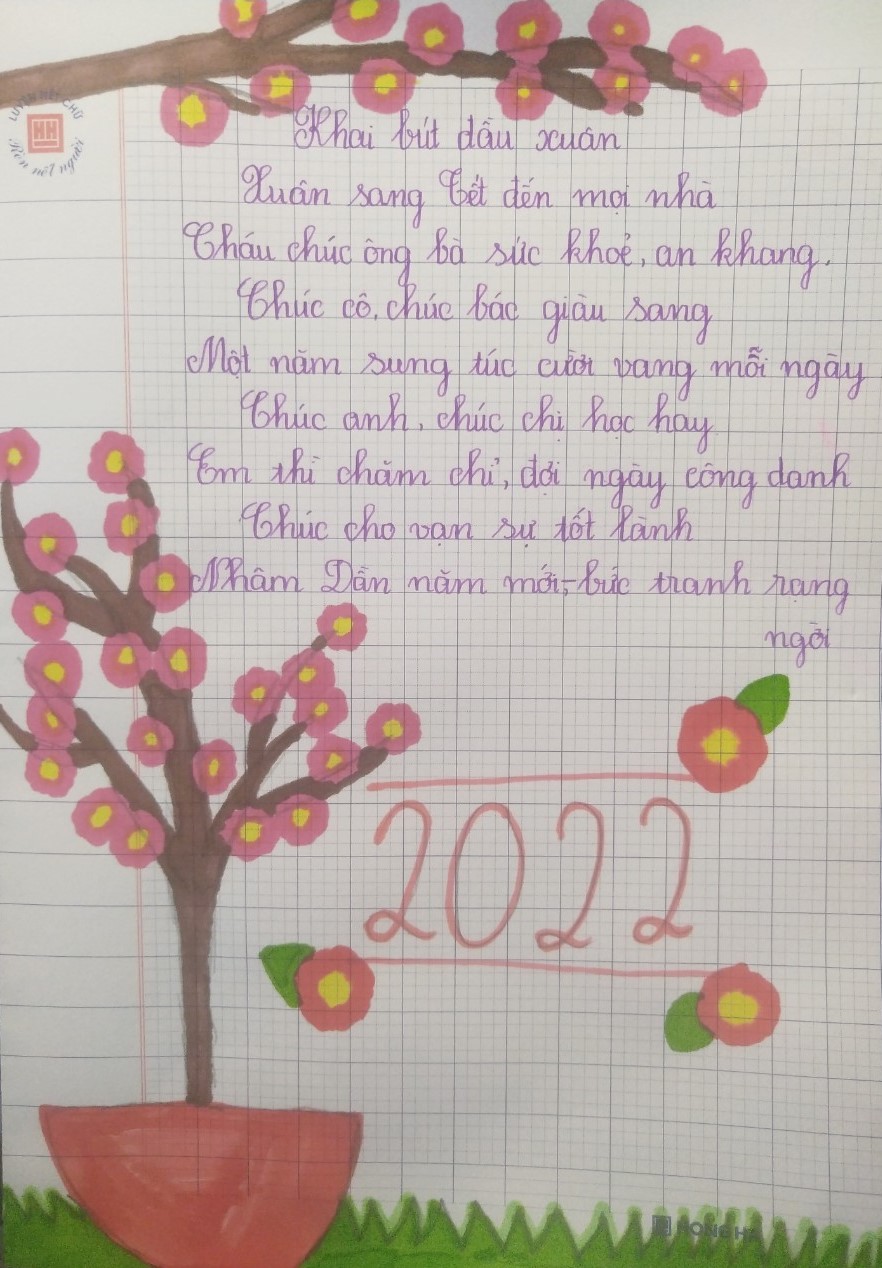 LUYỆN NÉT CHỮ
HH
Rèn nết người
Khai bút đầu xuân
Xuân sang Tết đến mọi nhà
Cháu chúc ông bà sức khoẻ, an khang.
Chúc cô, chúc bác giàu sang
Một năm sung túc cười vang mỗi ngày
Chúc anh, chúc chị học hay
Em thì chăm chỉ, đợi ngày công danh
Chúc cho vạn sự tốt lành
Nhâm Dần năm mới, bức tranh rạng
ngời
2022
HONG HA